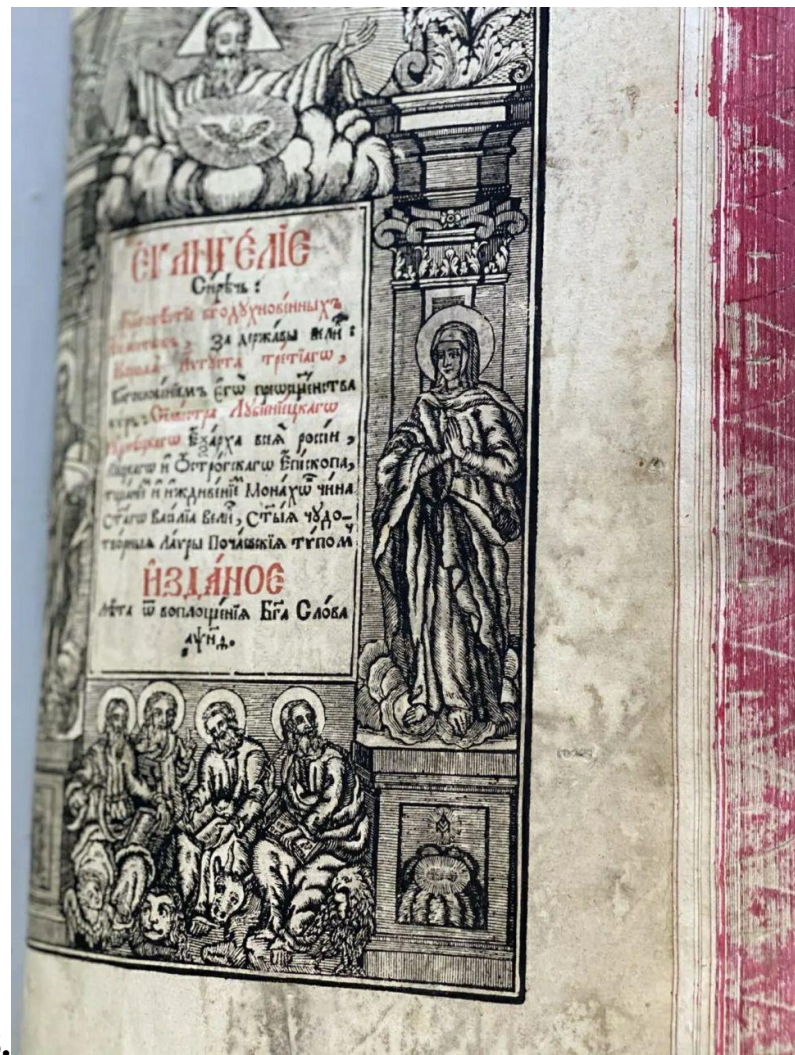 ЕѴАНГЕ́ЛІЕ
Си́рѣчь :
Бл҃говѣстїе бг҃одухнове́нныхъ
За держа́вы вели́ :
Короля̀ Аѵгуста тре́тїагѡ ,
Бл҃гослове́нїемъ є҆гѡ̀ преѡсщ҃е́нства
кѵръ Сѷлвестра Лꙋбїени́ецкагѡ
Рꙋдни́цкагѡ Е҆ѯа́рха всеѧ̀ россі́и ,
Лꙋ́цкагѡ и҆ Ѻ҆стро́гскагѡ Е҆пⷭ҇копа,
тщанїе́мъ и҆ и҆ждиве́нїемъ Мона́хѡвъ чи́на
Ст҃а́гѡ Васи́лїа Вели́ , Ст҃ы́ѧ чꙋдо–
тво́рныѧ Ла́ѵры Поча́евскїѧ тѵ́помъ
И҆ЗДА́НОЕ
Лѣ́та ѿ воплоще́нїѧ Бг҃а Сло́ва
҂аѱн҃д.